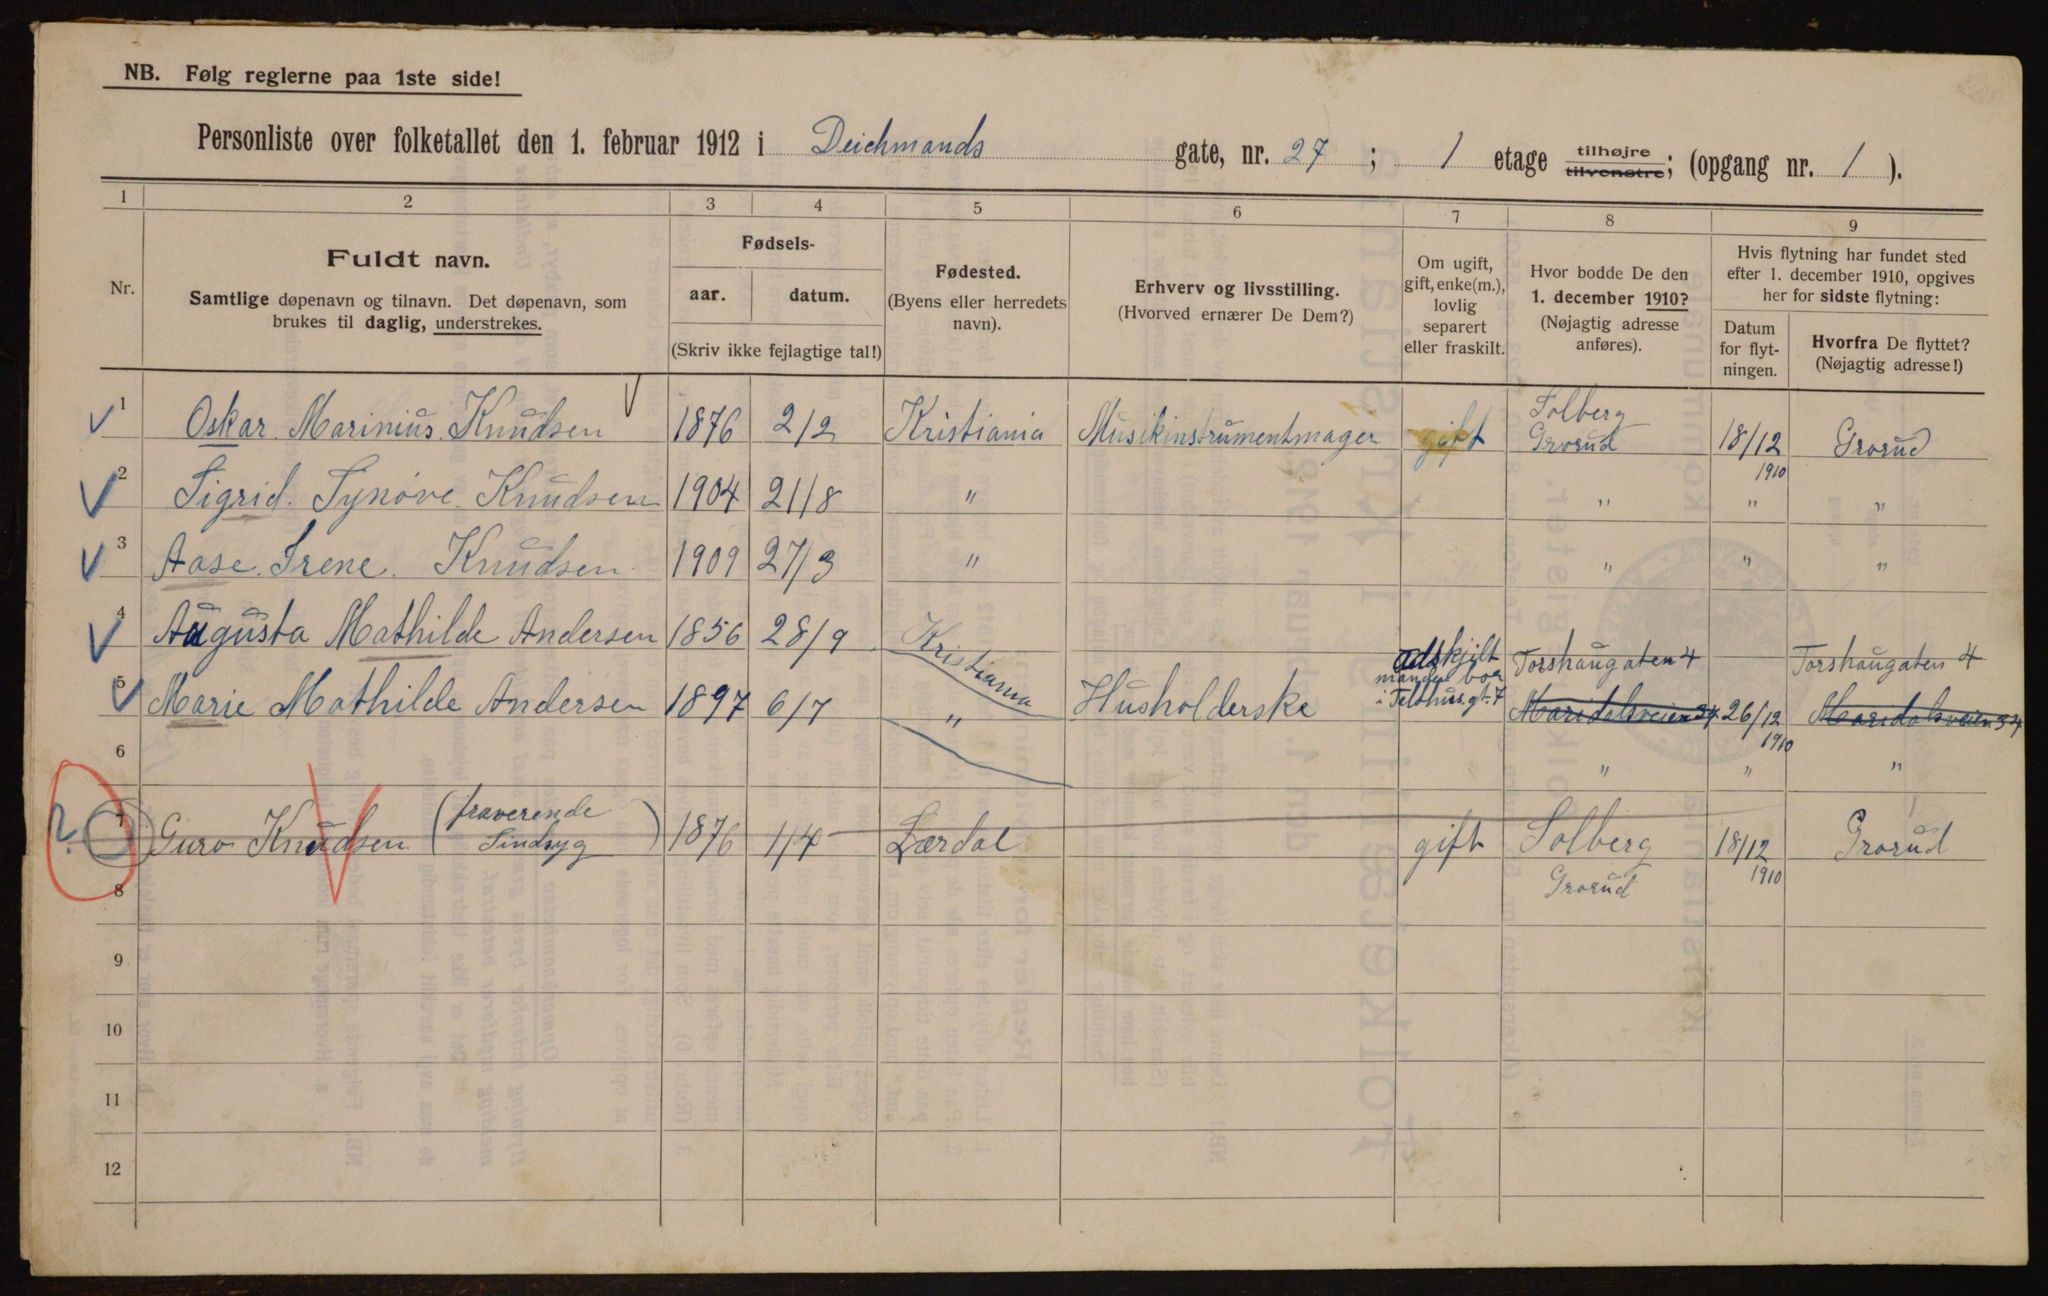 NB. Følg reglerne paa 1ste side!
Personliste over folketallet den 1. februar 1912 i Deichmands gate, nr. 27 ; 1 etage tilhøjre tilvenstre; (opgang nr. 1 ).
1 2 3 4 5 6 7 8 9
Nr.
Fuldt navn.
Samtlige døpenavn og tilnavn. Det døpenavn, som
brukes til daglig, understrekes.
Fødsels-
aar. datum.
(Skriv ikke fejlagtige tal!)
Fødested.
(Byens eller herredets
navn).
Erhverv og livsstilling.
(Hvorved ernærer De Dem?)
Om ugift,
gift, enke(m.),
lovlig
separert
eller fraskilt.
Hvor bodde De den
1. december 1910?
(Nøjagtig adresse
anføres).
Hvis flytning har fundet sted
efter 1. december 1910, opgives
her for sidste flytning:
Datum
for flyt-
ningen.
Hvorfra De flyttet?
(Nøjagtig adresse!)
1 Oskar Marinius Knudsen 1876 2/2 Kristiania Musikinstrumentmager gift Solberg Grorud 18/12 1910 Grorud
2 Sigrid Synøve Knudsen 1904 21/8 " " " "
3 Aase Irene Knudsen 1909 27/3 " " " "
4 Augusta Mathilde Andersen 1856 28/9 Kristiania Husholderske adskilt manden bor i Telthusgt. 7 Torshaugaten 4 Maridalsveien 34 26/12 1910 Torshaugaten 4 Maridalsveien 34
5 Marie Mathilde Andersen 1897 6/7 " " " "
6
7 Guro Knudsen (fraverende Sindsyg) 1876 1/4 Lærdal gift Solberg Grorud 18/12 1910 Grorud
8
9
10
11
12